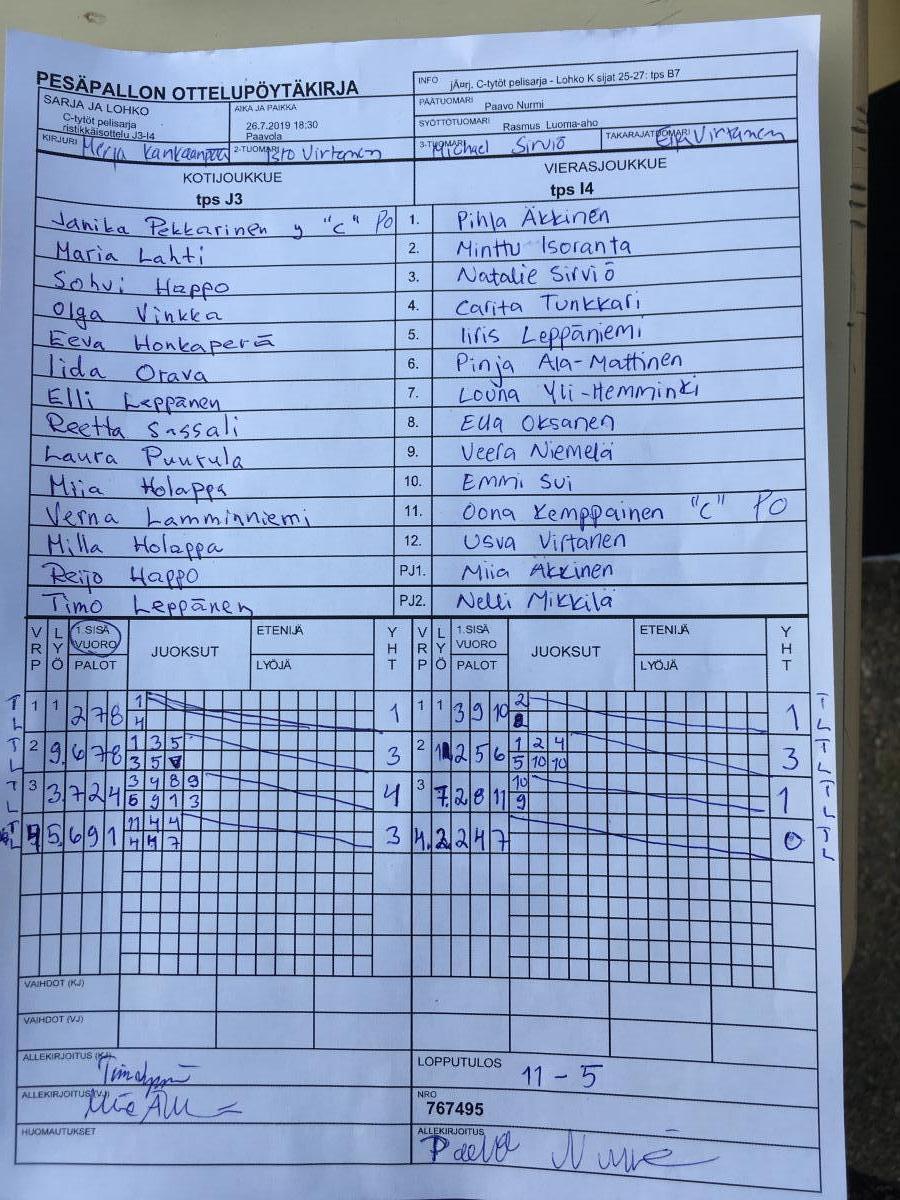 PESÄPALLON OTTELUPÖYTÄKIRJA
INFO jÄ¤rj, C-tytöt pelisarja - Lohko K sijat 25-27: tps B7
SARJA JA LOHKO
C-tytöt pelisarja
ristikkäisottelu J3-I4
AIKA JA PAIKKA
26.7.2019 18:30
Paavola
PÄÄTUOMARI Paavo Nurmi
SYÖTTÖTUOMARI Rasmus Luoma-aho
KIRJURI Merja Kankaanpää 2-TUOMARI Isto Virtanen 3-TUOMARI Michael Sirviö TAKARAJATUOMARI Virtanen
KOTIJOUKKUE
tps J3
VIERASJOUKKUE
tps I4
Janika Pekkarinen y "C" Po 1. Pihla Äkkinen
Maria Lahti 2. Minttu Isoranta
Sohvi Happo 3. Natalie Sirviö
Olga Vinkka 4. Carita Tunkkari
Eeva Honkaperä 5. Iiris Leppäniemi
Iida Orava 6. Pinja Ala-Mattinen
Elli Leppänen 7. Louna Yli-Hemminki
Reetta Sassali 8. Eda Oksanen
Laura Puurula 9. Veera Niemelä
Miia Holappa 10. Emmi Sui
Verna Lamminniemi 11. Oona Kemppainen "C" Po
Milla Holappa 12. Usva Virtanen
Reijo Happo PJ1. Miia Äkkinen
Timo Leppänen PJ2. Nelli Mikkilä
VRP LYÖ 1.SISÄ VUORO PALOT JUOKSUT ETENIJÄ LYÖJÄ YHT VRP LYÖ 1.SISÄ VUORO PALOT JUOKSUT ETENIJÄ LYÖJÄ YHT
T 1 1 2 7 8 1 1 1 1 3 9 10 2 1 T
L 4 8 L
T 2 9. 6 7 8 1 3 5 3 2 2 5 6 1 2 4 3 T
L 3 5 5 10 10 L
T 3 3. 7 2 4 3 4 8 9 4 3 7. 2 8 11 10 1 T
L 5 9 1 3 9 L
T 4 5. 6 9 1 11 4 4 3 4. 2. 2 4 7 0 T
L 4 4 7 L
VAIHDOT (KJ)
VAIHDOT (VJ)
ALLEKIRJOITUS (KJ)
LOPPUTULOS 11 - 5
ALLEKIRJOITUS (VJ)
NRO
767495
HUOMAUTUKSET
ALLEKIRJOITUS
Paavo Nurmi